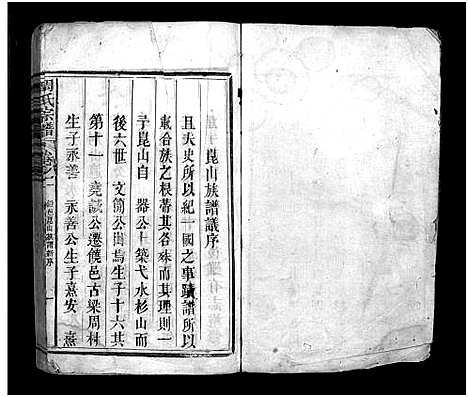 崑山族譜議序
且夫史所以紀一國之事蹟譜所以
載合族之根蒂其各殊而其理則一
予崑山自　器公卜築弋水杉山而
後六世　文簡公出焉生子十六其
第十一　堯誠公遷饒邑古梁周村
生子永善　永善公生子熹安　熹
周氏宗譜